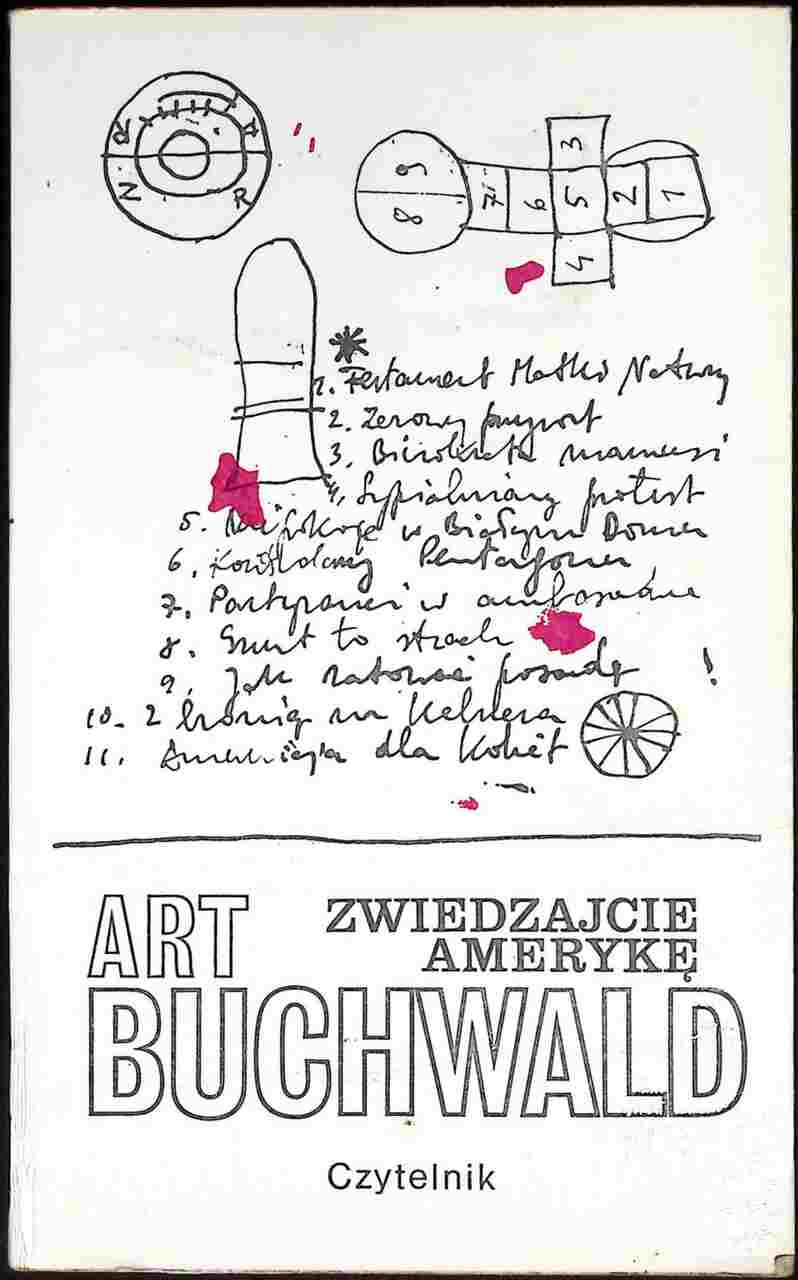 R
A
N
R
9
8
7
6
3
5
4
2
1
1. Testament Matki Natury
2. Zerowy przyrost
3. Biurokrata mamusi
4. Sypialniany protest
5. w Białym Domu
6. Pentagonu
7. Partyzanci w ambasadzie
8. Grunt to strach
9. Jak ratować posadę !
10. Z bronią na kelnera
11. dla kobiet
ART
ZWIEDZAJCIE
AMERYKĘ
BUCHWALD
Czytelnik